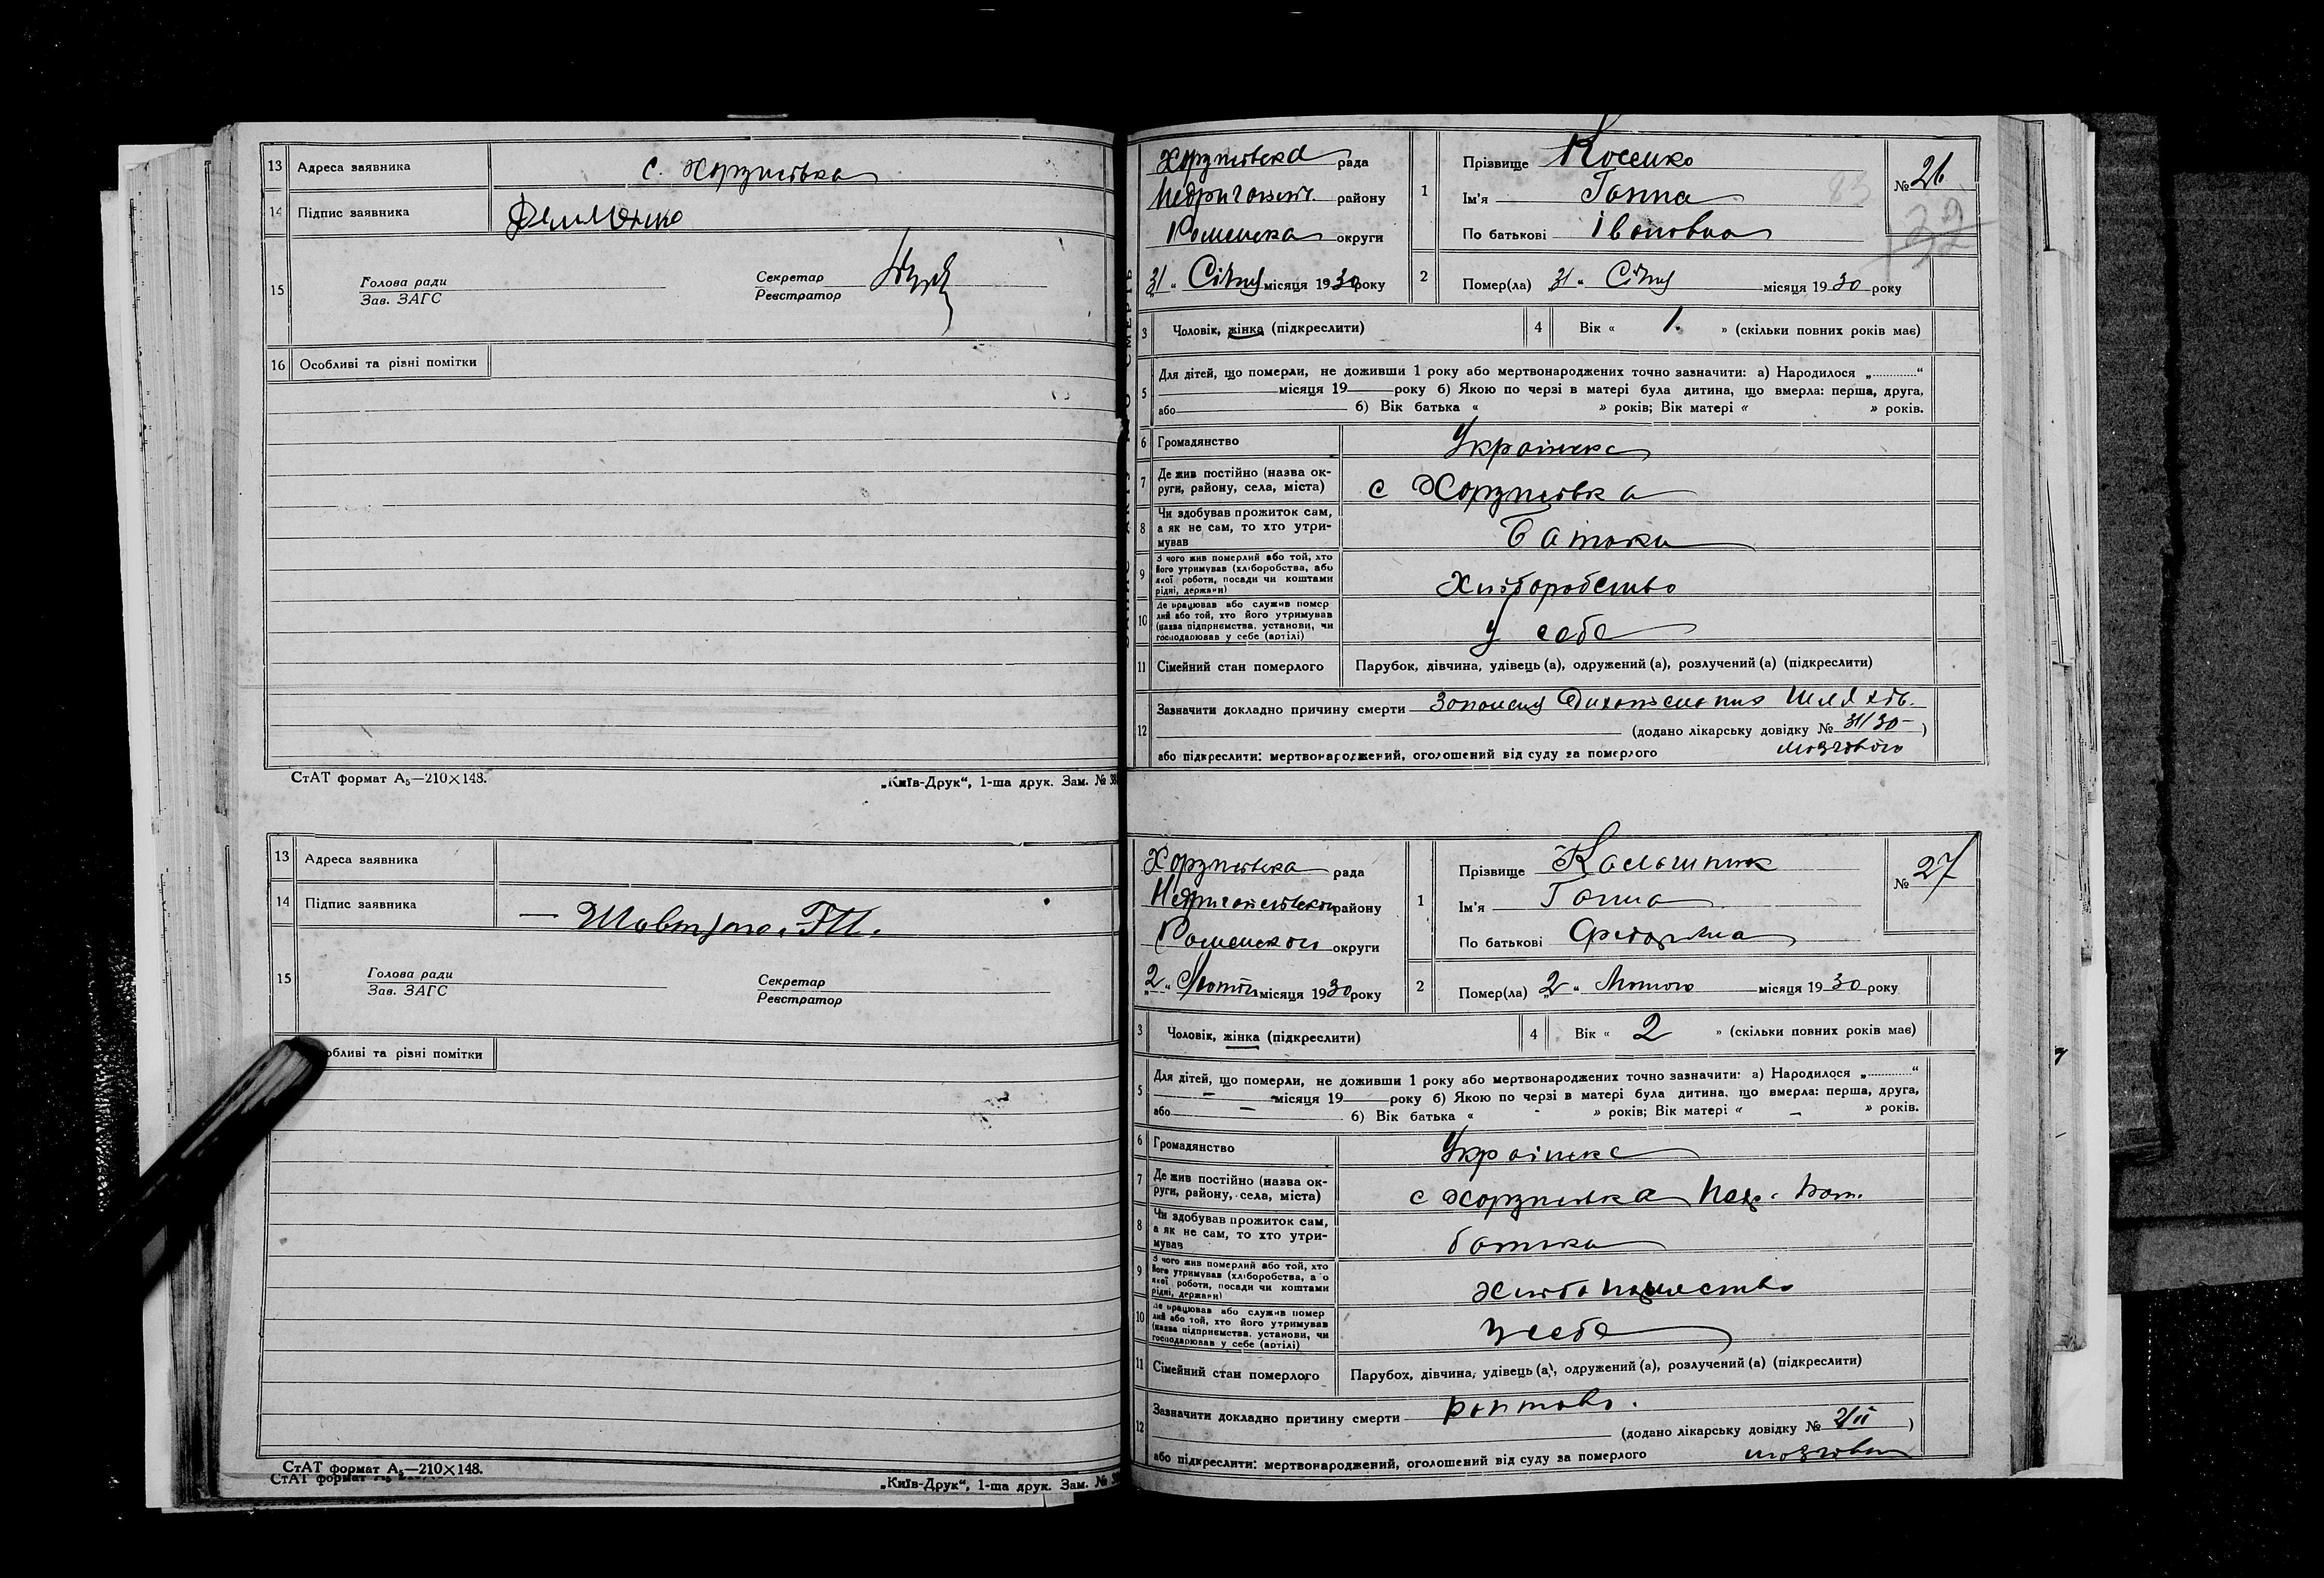 13 Адреса заявника с. Хоружівка
14 Підпис заявника
15 Голова ради
Зав. ЗАГС
Секретар
Реєстратор
16 Особливі та різні помітки
СтАТ формат А₅—210×148.
„Київ-Друк“, 1-ша друк. Зам. №
13 Адреса заявника
14 Підпис заявника
15 Голова ради
Зав. ЗАГС
Секретар
Реєстратор
обливі та різні помітки
СтАТ формат А₅—210×148.
СтАТ формат
„Київ-Друк“, 1-ша друк. Зам. №
рада
району
округи
31 " Січня місяця 1930 року
1 Прізвище Косенко
Ім'я Ганна
По батькові Івановна
№ 26
2 Помер(ла) 31 " Січня місяця 1930 року
3 Чоловік, жінка (підкреслити)
4 Вік « 1. » (скільки повних років має)
5 Для дітей, що померли, не доживши 1 року або мертвонароджених точно зазначити: а) Народилося „............“
місяця 19 року б) Якою по черзі в матері була дитина, що вмерла: перша, друга,
або б) Вік батька « » років; Вік матері « » років.
6 Громадянство Українка
7 Де жив постійно (назва ок-
руги, району, села, міста) с Хоружівка
8 Чи здобував прожиток сам,
а як не сам, то хто утри-
мував Батьки
9 З чого жив померлий або той, хто
його утримував (хліборобства, або
якої роботи, посади чи коштами
рідні, держави) Хліборобство
10 Де працював або служив помер
лий або той, хто його утримував
(назва підприємства, установи, чи
господарював у себе (артілі) У себе
11 Сімейний стан померлого Парубок, дівчина, удівець (а), одружений (а), розлучений (а) (підкреслити)
12 Зазначити докладно причину смерти
(додано лікарську довідку № 31/30 )
або підкреслити: мертвонароджений, оголошений від суду за померлого
рада
району
округи
2 " Лютого місяця 1930 року
1 Прізвище Калашник
Ім'я Ганна
По батькові
№ 27
2 Помер(ла) 2 " Лютого місяця 1930 року
3 Чоловік, жінка (підкреслити)
4 Вік « 2 » (скільки повних років має)
5 Для дітей, що померли, не доживши 1 року або мертвонароджених точно зазначити: а) Народилося „............“
місяця 19 року б) Якою по черзі в матері була дитина, що вмерла: перша, друга,
або б) Вік батька « - » років; Вік матері « - » років.
6 Громадянство Українка
7 Де жив постійно (назва ок-
руги, району, села, міста) с Хоружівка
8 Чи здобував прожиток сам,
а як не сам, то хто утри-
мував батька
9 З чого жив померлий або той, хто
його утримував (хліборобства, або
якої роботи, посади чи коштами
рідні, держави)
10 Де працював або служив помер
лий або той, хто його утримував
(назва підприємства, установи, чи
господарював у себе (артілі) У себе
11 Сімейний стан померлого Парубок, дівчина, удівець (а), одружений (а), розлучений (а) (підкреслити)
12 Зазначити докладно причину смерти раптово.
(додано лікарську довідку № 2/II )
або підкреслити: мертвонароджений, оголошений від суду за померлого